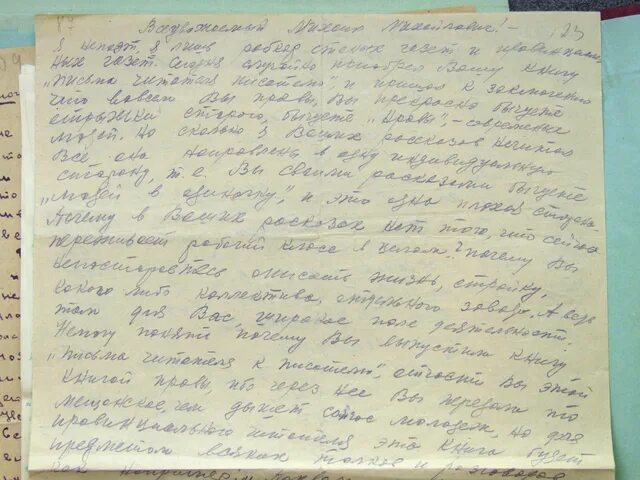 Всеуважаемый Михаил Михайлович! — 123
Я непоэт, я лишь рабкор стенных газет и провинциаль
ных газет. Сегодня случайно приобрел Вашу книгу
„Письма читателя писателю", и пришел к заключению
что вовсем Вы правы, Вы прекрасно бичуете
старого, бичуете „нравы", — современных
людей. Но сколько я Ваших рассказов не читал
Все они направлены в одну индивидуальную
сторону, т. е. Вы своими рассказами бичуете
„людей в одиночку", и это одна плохая сторона
Почему в Ваших рассказах нет того, что сейчас
переживает рабочий класс в целом? почему Вы
непостараетесь описать жизнь, стройку,
какого либо коллектива, отдельного завода, А ведь
там для Вас широкое поле деятельности.
Немогу понять, почему Вы выпустили книгу
„Письма читателя к писателю", отчасти Вы этой
книгой правы, ибо через нее Вы передали то
мещанское, чем дышет сейчас молодежь, но для
провинциального читателя эта книга будет
предметом всяких толков и разговоров
как например